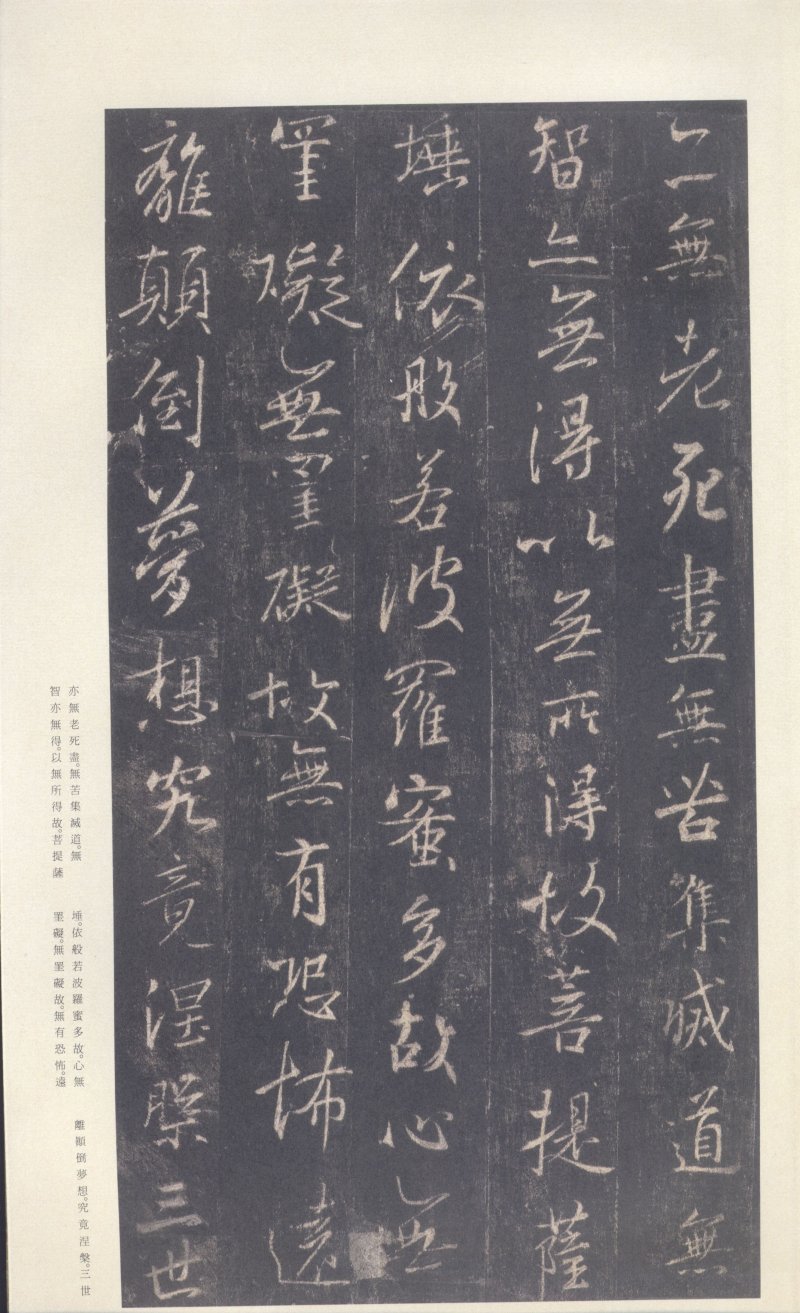 亦無老死盡無苦集滅道無
智亦無得以無所得故菩提薩
埵依般若波羅蜜多故心無
罣礙無罣礙故無有恐怖遠
離顛倒夢想究竟涅槃三世
亦無老死盡。無苦集滅道。無
智亦無得。以無所得故。菩提薩
埵。依般若波羅蜜多故。心無
罣礙。無罣礙故。無有恐怖。遠
離顚倒夢想。究竟涅槃。三世